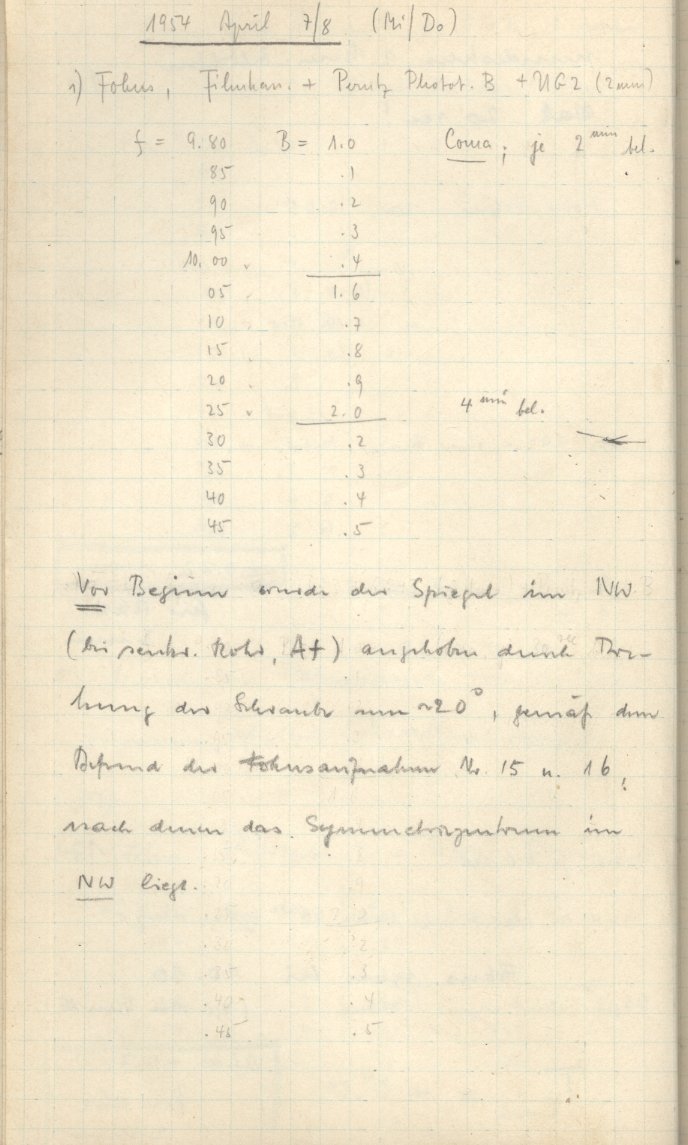 1954 April 7/8 (Mi/Do)
1) Fokus, Filmkas. + Perutz Photot. B + UG2 (2mm)
f = 9.80 B = 1.0 Coma; je 2 min bel.
85 .1
90 .2
95 .3
10.00 .4
05 1.6
10 .7
15 .8
20 .9
25 2.0 4 min bel.
30 .2
35 .3
40 .4
45 .5
Vor Beginn wurde der Spiegel im NW
(bei senkr. Rohr, A+) angehoben durch Dre-
hung der Schraube um ~20°, gemäß dem
Befund der Fokusaufnahmen Nr. 15 u. 16,
nach denen das Symmetriezentrum im
NW liegt.